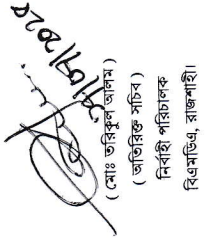 ( মোঃ তরিকুল আলম )
( অতিরিক্ত সচিব )
নির্বাহী পরিচালক
বিএমডিএ, রাজশাহী।